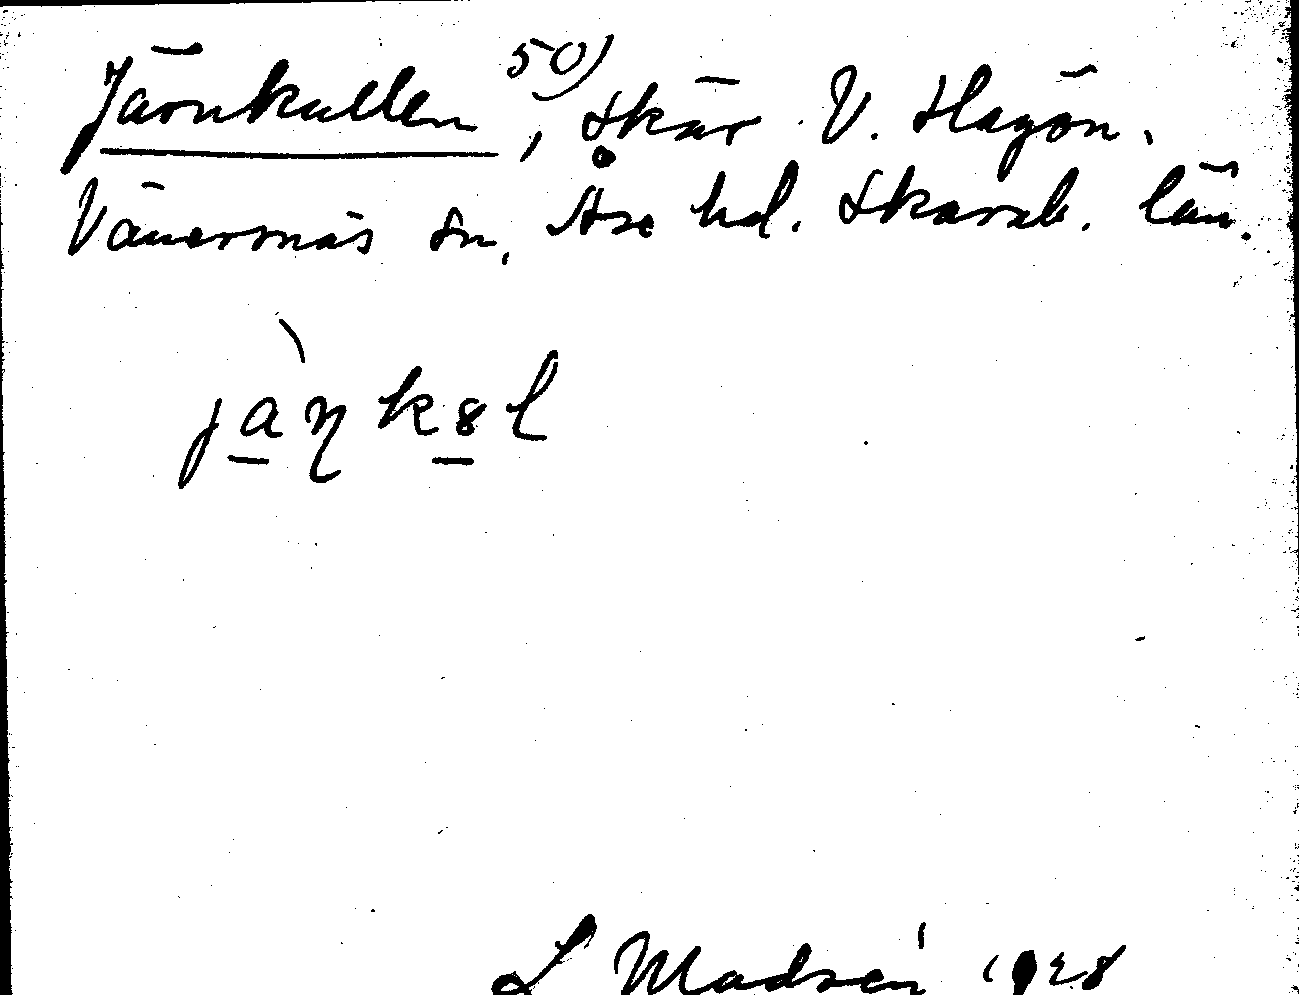 Järnkullen 50), skär V. Hagön.
Vänersnäs sn. Åse hd. Skarab. län.
L Madsén 1928